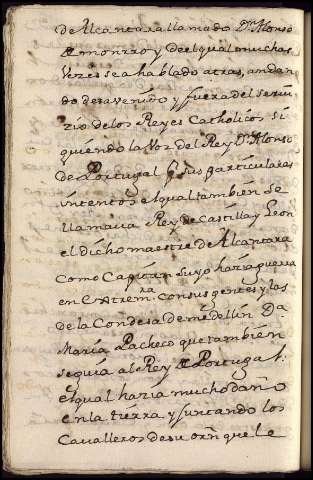 de Alcantara llamado Dn. Alonso
de monrroy y de el qual muchas
vezes se a hablado atras, andan
do desavenido y fuera del servi
zio de los Reyes Catholicos si
guiendo la voz del Rey Dn. Alonso
de Portugal y sus particulares
intentos el qual tambien se
llamava Rey de Castilla y Leon
el dicho maestre de Alcantara
como Capitan suyo hazia guerra
en Extrem.ra con sus gentes y las
de la Condesa de medellin Da
Maria Pacheco que tambien
seguia al Rey de Portugal,
el qual hazia mucho daño
en la tierra, y juntando los
Cavalleros de su orn que le